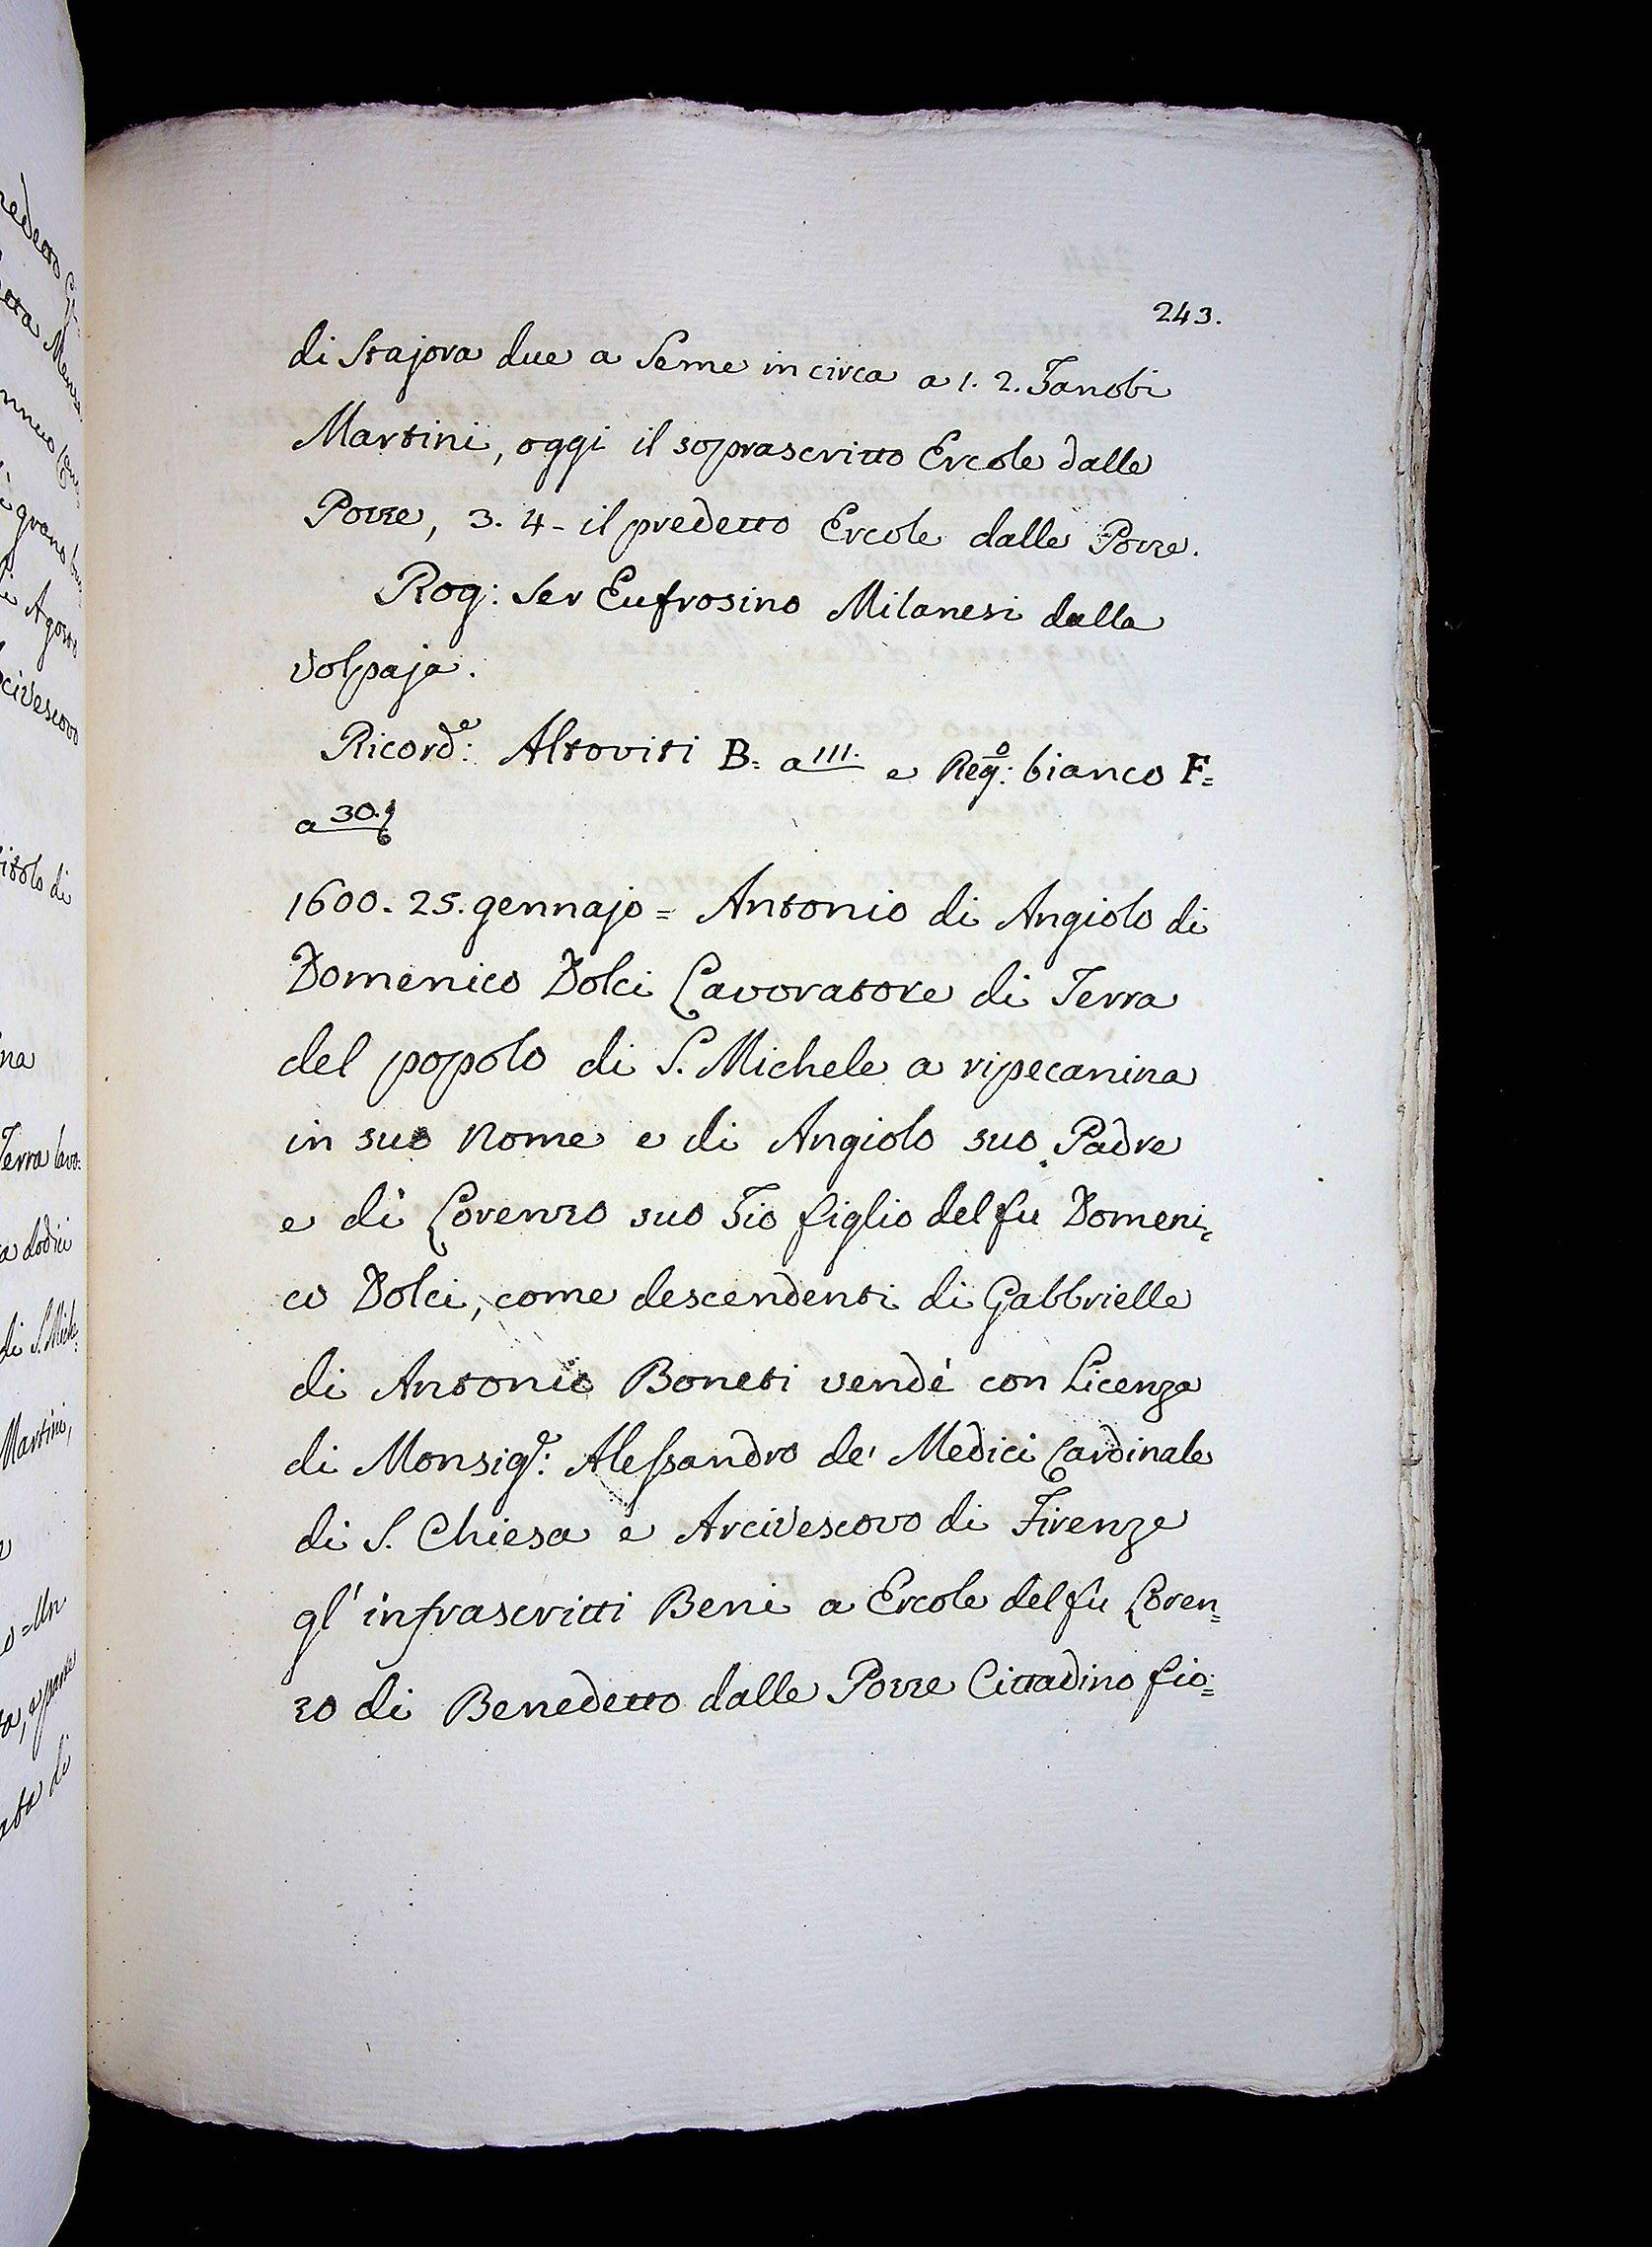 243.
di Stajora due a Seme in circa a 1. 2. Zanobi
Martini, oggi il soprascritto Ercole dalle
Pozze, 3. 4 - il predetto Ercole dalle Pozze.
Rog: Ser Eufrosino Milanesi dalla
Volpaja.
Ricord:e Altoviti B= a 111. e Reg:o bianco F=
a 30.
1600. 25. gennajo = Antonio di Angiolo di
Domenico Dolci Lavoratore di Terra
del popolo di S. Michele a ripecanina
in suo Nome e di Angiolo suo Padre
e di Lorenzo suo Zio figlio del fu Domeni=
co Dolci, come descendenti di Gabbrielle
di Antonio Boneti vendè con Licenza
di Monsig:e Alessandro de' Medici Cardinale
di S. Chiesa e Arcivescovo di Firenze
gl' infrascritti Beni a Ercole del fu Loren=
zo di Benedetto dalle Pozze Cittadino fio=